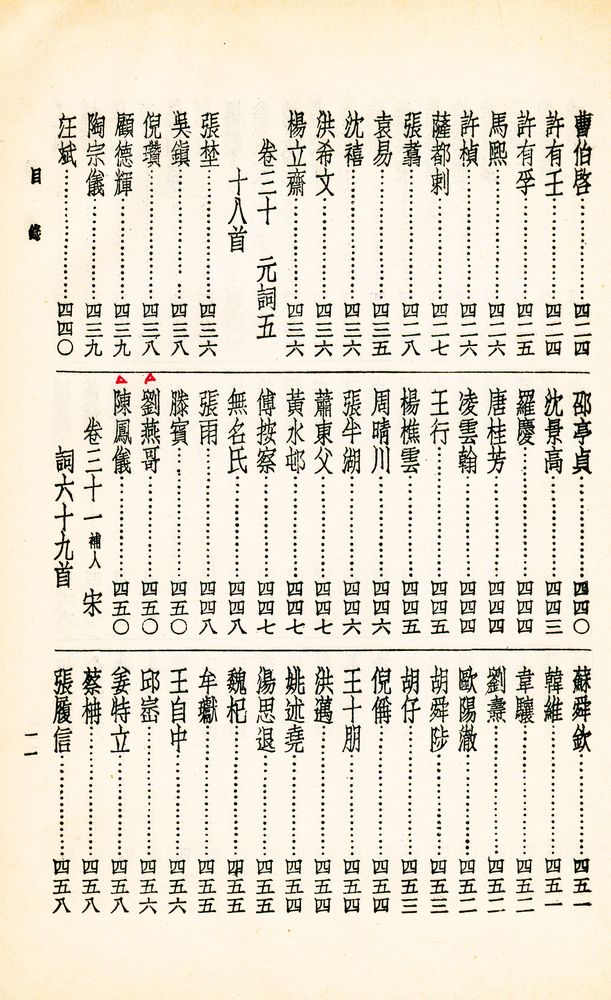 曹伯啓⋯⋯四二四
許有壬⋯⋯四二四
許有孚⋯⋯四二五
馬熙⋯⋯四二六
許楨⋯⋯四二六
薩都剌⋯⋯四二七
張翥⋯⋯四二八
袁易⋯⋯四三五
沈禧⋯⋯四三六
洪希文⋯⋯四三六
楊立齋⋯⋯四三六
卷三十　元詞五
十八首
張埜⋯⋯四三六
吳鎮⋯⋯四三八
倪瓚⋯⋯四三八
顧德輝⋯⋯四三九
陶宗儀⋯⋯四三九
汪斌⋯⋯四四〇
邵亭貞⋯⋯四四〇
沈景高⋯⋯四四三
羅慶⋯⋯四四四
唐桂芳⋯⋯四四四
凌雲翰⋯⋯四四四
王行⋯⋯四四五
楊樵雲⋯⋯四四五
周晴川⋯⋯四四六
張半湖⋯⋯四四六
蕭東父⋯⋯四四七
黃水邨⋯⋯四四七
傅按察⋯⋯四四七
無名氏⋯⋯四四八
張雨⋯⋯四四八
滕賓⋯⋯四五〇
劉燕哥⋯⋯四五〇
陳鳳儀⋯⋯四五〇
卷三十一 補人　宋
詞六十九首
蘇舜欽⋯⋯四五一
韓維⋯⋯四五一
韋驤⋯⋯四五二
劉燾⋯⋯四五二
歐陽澈⋯⋯四五二
胡舜陟⋯⋯四五三
胡仔⋯⋯四五三
倪偁⋯⋯四五四
王十朋⋯⋯四五四
洪邁⋯⋯四五四
姚述堯⋯⋯四五四
湯思退⋯⋯四五五
魏杞⋯⋯四五五
牟巘⋯⋯四五五
王自中⋯⋯四五六
邱崈⋯⋯四五六
姜特立⋯⋯四五八
蔡柟⋯⋯四五八
張履信⋯⋯四五八
目錄
一一